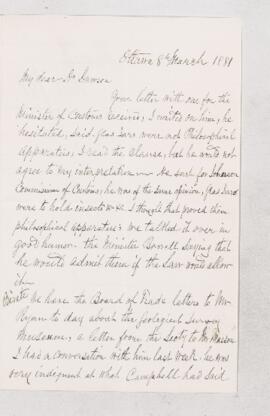 Ottawa 8th March 1881
My dear Dr Dawson
Your letter with one for the
Minister of Customs received, I waited on him, he
hesitated, said glass Jars were not Philosophical
Apparatus, I read the clause, but he would not
agree to my interpretation. He sent for Johnson
Commissioner of Customs, he was of the same opinion, glass Jars
were to hold insects &c &c I thought that proved them
philosophical apparatus. We talked it over in
good humor. The Minister Bowell saying that
he would admit them if the Law would allow
him
Private We have the Board of Trade letters to Mr
Ryan to day about the Geological Survey
Museum, a letter from the Secty to Mr
I had a conversation with him last week. he was
very indignant at what Campbell had said